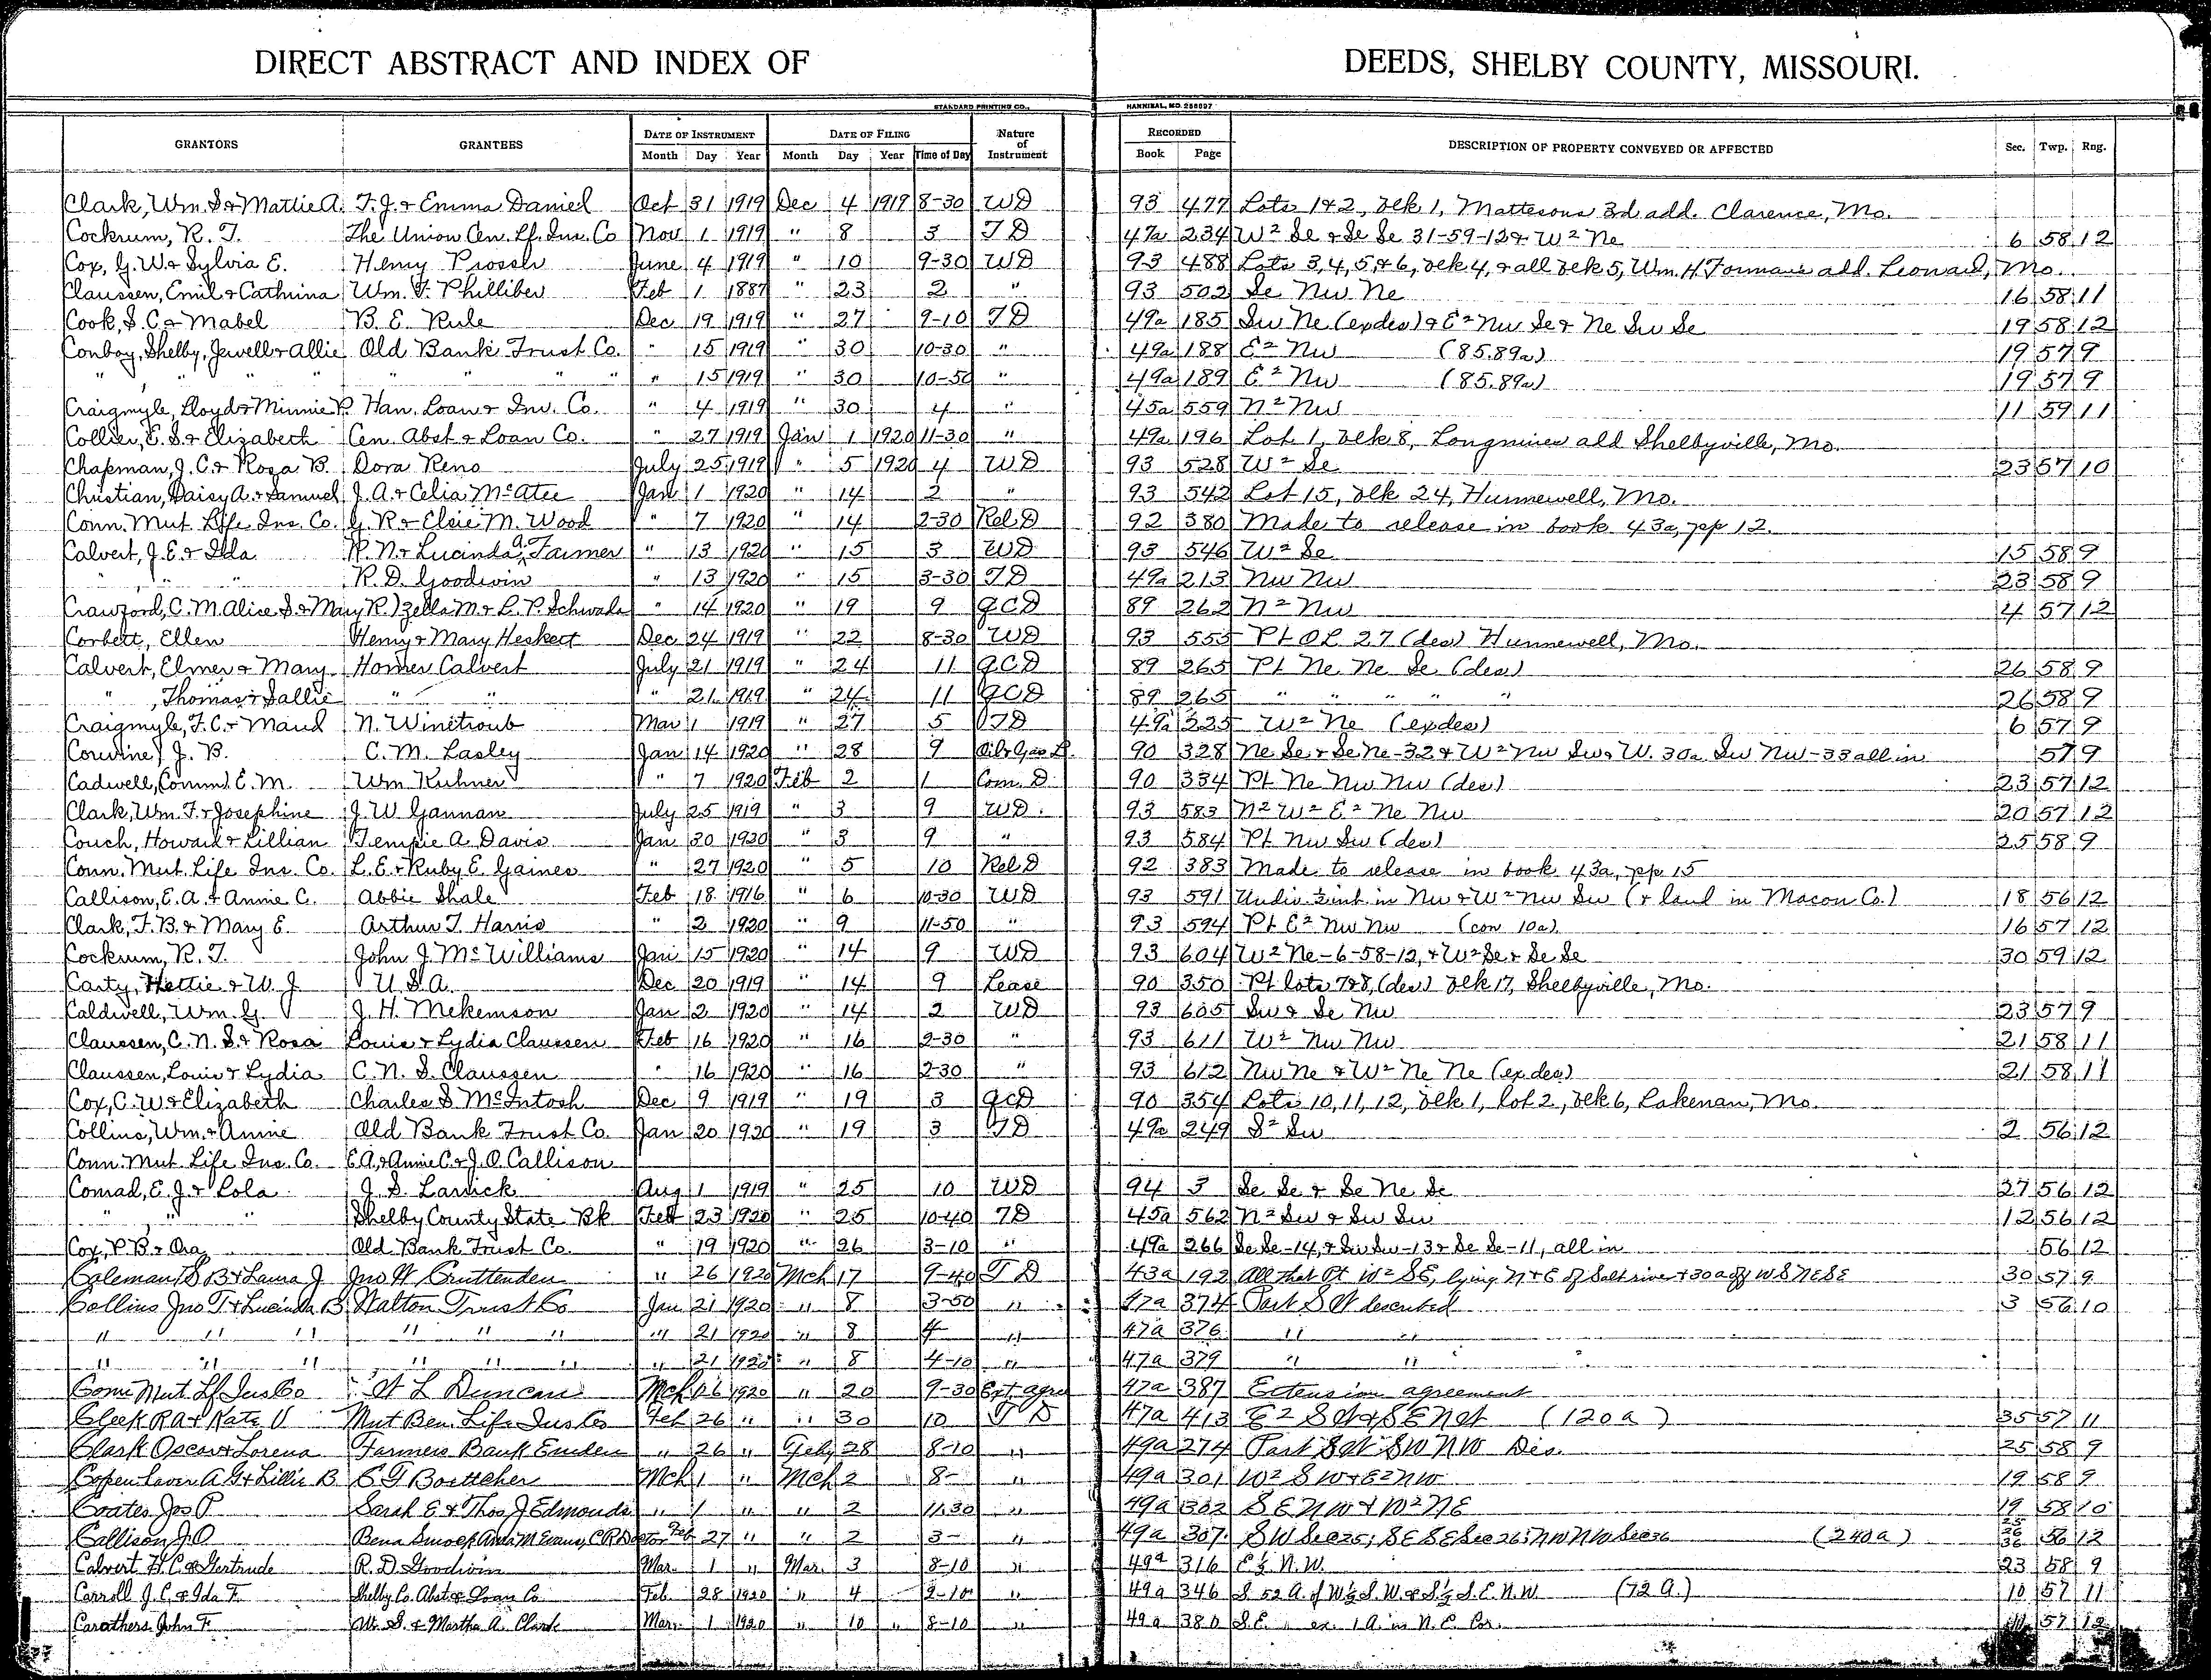 DIRECT ABSTRACT AND INDEX OF DEEDS, SHELBY COUNTY, MISSOURI.
STANDARD PRINTING CO., HANNIBAL, MO. 256097
GRANTORS GRANTEES DATE OF INSTRUMENT DATE OF FILING Nature of Instrument RECORDED DESCRIPTION OF PROPERTY CONVEYED OR AFFECTED Sec. Twp. Rng.
Month Day Year Month Day Year Time of Day Book Page
Clark, Wm. S. & Mattie A. T. J. & Emma Daniel Oct 31 1919 Dec 4 1919 8-30 WD 93 477 Lots 1 & 2, Blk 1, Mattesons 3d add. Clarence, Mo.
Cockrum, R. T. The Union Cen. Lf. Ins. Co Nov 1 1919 " 8 3 TD 47a 234 W² Se & Se Se 31-59-12 & W² Ne 6 58 12
Cox, G. W. & Sylvia E. Henry Prosser June 4 1919 " 10 9-30 WD 93 488 Lots 3, 4, 5, & 6, Blk 4, & all Blk 5, Wm. H. Formans add. Leonard, Mo.
Claussen, Emil & Cathrina Wm. F. Philliber Feb 1 1887 " 23 2 " 93 502 Se Nw Ne 16 58 11
Cook, S. C. & Mabel B. E. Rule Dec 19 1919 " 27 9-10 TD 49a 185 Sw Ne (exdes) & E² Nw Se & Ne Sw Se 19 58 12
Conboy, Shelby, Jewell & Allie Old Bank Trust Co. " 15 1919 " 30 10-30 " 49a 188 E² Nw (85.89a) 19 57 9
" " " " " " " " " 15 1919 " 30 10-50 " 49a 189 E² Nw (85.89a) 19 57 9
Craigmyle, Lloyd & Minnie P. Han. Loan & Inv. Co. " 4 1919 " 30 4 " 45a 559 N² Nw 11 59 11
Collier, E. S. & Elizabeth Cen. Abst & Loan Co. " 27 1919 Jan 1 1920 11-30 " 49a 196 Lot 1, Blk 8, Longmires add Shelbyville, Mo.
Chapman, J. C. & Rosa B. Dora Reno July 25 1919 " 5 1920 4 WD 93 528 W² Se 23 57 10
Christian, Daisy A. & Samuel J. A. & Celia McAtee Jan 1 1920 " 14 2 " 93 542 Lot 15, Blk 24, Hunnewell, Mo.
Conn. Mut. Life Ins. Co. G. R. & Elsie M. Wood " 7 1920 " 14 2-30 Rel. D 92 380 Made to release in book 43a, pp 12.
Calvert, J. E. & Ida R. N. & Lucinda A. Farmer " 13 1920 " 15 3 WD 93 546 W² Se 15 58 9
" " " R. D. Goodwin " 13 1920 " 15 3-30 TD 49a 213 Nw Nw 23 58 9
Crawford, C. M. Alice S. & Mary R.) Zella M. & L. P. Schwada " 14 1920 " 19 9 QCD 89 262 N² Nw 4 57 12
Corbett, Ellen Henry & Mary Heskert Dec 24 1919 " 22 8-30 WD 93 555 Pt OL 27 (des) Hunnewell, Mo.
Calvert, Elmer & Mary Homer Calvert July 21 1919 " 24 11 QCD 89 265 Pt Ne Ne Se (des) 26 58 9
" , Thomas & Sallie " " " 21 1919 " 24 11 QCD 89 265 " " " " " 26 58 9
Craigmyle, F. C. & Maud N. Winetroub Mar 1 1919 " 27 5 TD 49a 225 W² Ne (exdes) 6 57 9
Corwine, J. B. C. M. Lasley Jan 14 1920 " 28 9 Oil & Gas L. 90 328 Ne Se & Se Ne-32 & W² Nw Sw & W. 30a Sw Nw-33 all in 57 9
Cadwell, (Comm) E. M. Wm Kuhner " 7 1920 Feb 2 1 Com. D. 90 334 Pt Ne Nw Nw (des) 23 57 12
Clark, Wm. F. & Josephine J. W. Gannan July 25 1919 " 3 9 WD. 93 583 N² W² E² Ne Nw 20 57 12
Couch, Howard & Lillian Tempie A. Davis Jan 30 1920 " 3 9 " 93 584 Pt Nw Sw (des) 25 58 9
Conn. Mut. Life Ins. Co. L. E. & Ruby E. Gaines " 27 1920 " 5 10 Rel D 92 383 Made to release in book 43a, pp 15
Callison, E. A. & Annie C. Abbie Shale Feb 18 1916 " 6 10-30 WD 93 591 Undiv ½ int in Nw & W² Nw Sw (& land in Macon Co.) 18 56 12
Clark, F. B. & Mary E. Arthur T. Harris " 2 1920 " 9 11-50 " 93 594 Pt E² Nw Nw (con 10a) 16 57 12
Cockrum, R. T. John J. McWilliams Jan 15 1920 " 14 9 WD 93 604 W² Ne-6-58-12, & W² Se & Se Se 30 59 12
Carty, Hettie & W. J U. S. A. Dec 20 1919 " 14 9 Lease 90 350 Pt lots 7 & 8, (des) Blk 17, Shelbyville, Mo.
Caldwell, Wm. G. J. H. Mekemson Jan 2 1920 " 14 2 WD 93 605 Sw & Se Nw 23 57 9
Claussen, C. N. S. & Rosa Louis & Lydia Claussen Feb 16 1920 " 16 2-30 " 93 611 W² Nw Nw 21 58 11
Claussen, Louis & Lydia C. N. S. Claussen " 16 1920 " 16 2-30 " 93 612 Nw Ne & W² Ne Ne (exdes) 21 58 11
Cox, C. W. & Elizabeth Charles S. McIntosh Dec 9 1919 " 19 3 QCD 90 354 Lots 10, 11, 12, Blk 1, lot 2, Blk 6, Lakenan, Mo.
Collins, Wm. & Annie Old Bank Trust Co. Jan 20 1920 " 19 3 TD 49a 249 S² Sw 2 56 12
Conn. Mut. Life Ins. Co. E. A. & Annie C. & J. O. Callison
Conrad, E. J. & Lola J. S. Larrick Aug 1 1919 " 25 10 WD 94 3 Se Se & Se Ne Se 27 56 12
" " " Shelby County State Bk Feb 23 1920 " 25 10-40 TD 45a 562 N² Sw & Sw Sw 12 56 12
Cox, P. B. & Ora Old Bank Trust Co. " 19 1920 " 26 3-10 " 49a 266 Se Se-14, & Sw Sw-13 & Se Se-11, all in 56 12
Coleman, S B & Laura J Jno W Cruttenden " 26 1920 Mch 17 9-40 TD 43a 192 All that Pt W² SE, lying N & E of Salt river & 30a off W S NE SE 30 57 9
Collins Jno T & Lucinda B Walton Trust Co Jan 21 1920 " 8 3-50 " 47a 374 Part S W described 3 56 10
" " " " " " " 21 1920 " 8 4 " 47a 376 " "
" " " " " " " 21 1920 " 8 4-10 " 47a 379 " "
Conn Mut Lf Ins Co W L Duncan Mch 16 1920 " 20 9-30 Ext. agre 47a 387 Extension agreement
Cleek R A & Kate V Mut Ben. Life Ins Co Feb 26 " " 30 10 T D 47a 413 E² SW & SE NW (120a) 35 57 11
Clark Oscar & Lorena Farmers Bank Emden " 26 " Feb 28 8-10 " 49a 274 Part SW SW NW Des. 25 58 9
Copenhaver A G & Lillie B C F Boettcher Mch 1 " Mch 2 8- " 49a 301 W² SW & E² NW 19 58 9
Coates Jos P Sarah E & Thos J Edmonds " 1 " " 2 11-30 " 49a 302 SE NW & W² NE 19 58 10
Callison J. O Bena Smock Anda M Evans, C R Doctor Feb 27 " " 2 3- " 49a 307 SW Sec 25; SE SE Sec 26; NW NW Sec 36 (240a) 25 26 36 56 12
Calvert H. C. & Gertrude R. D. Goodwin Mar. 1 " Mar. 3 8-10 " 49a 316 E ½ N.W. 23 58 9
Carroll J. C. & Ida F. Shelby Co. Abst & Loan Co Feb. 28 1920 " 4 9-10 " 49a 346 S. 52 A. of W½ S.W. & S½ S.E. N.W (72 A.) 10 57 11
Carothers John F. W. S. & Martha A. Clark Mar. 1 1920 " 10 " 8-10 " 49a 380 S.E. ex. 1 A. in N.E. Cor. 57 12